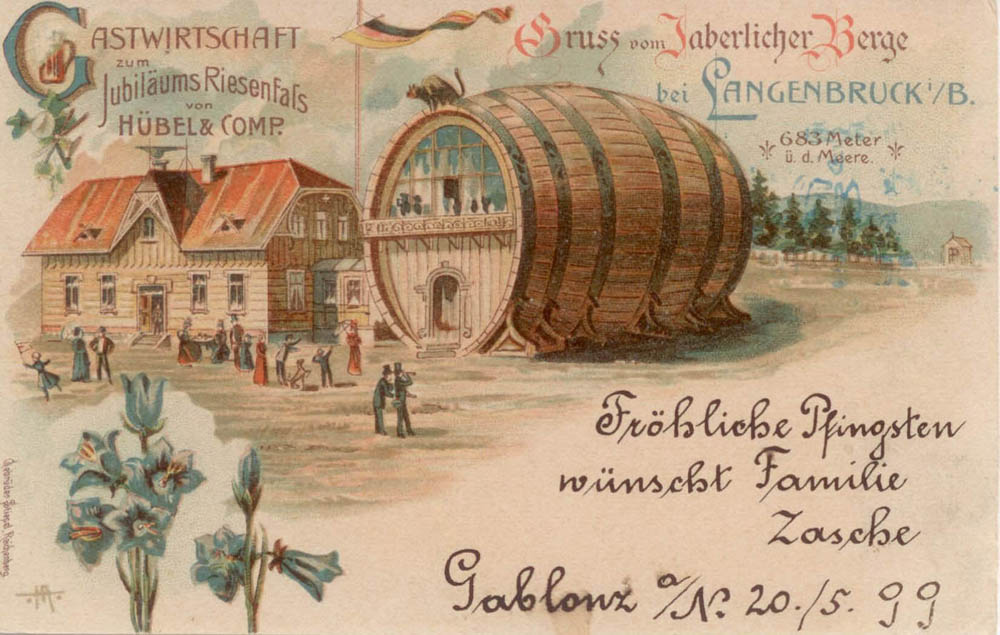 GASTWIRTSCHAFT
zum
Jubiläums Riesenfass
von
HÜBEL & COMP.
Gruss vom Jaberlicher Berge
bei LANGENBRUCK i/B.
683 Meter
ü. d. Meere.
Fröhliche Pfingsten
wünscht Familie
Zasche
Gablonz a/N. 20./5. 99
Gebrüder Stiepel, Reichenberg